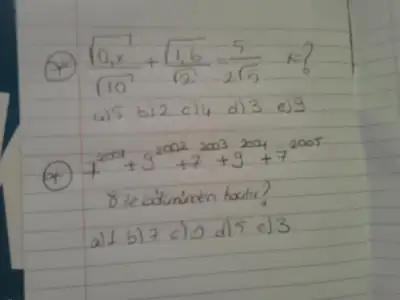 √0,x / √10 + √1,6 / √2 = 5 / 2√5 x=?
a)5 b)2 c)4 d)3 e)9
7^2001 + 9^2002 + 7^2003 + 9^2004 + 7^2005
8 ile bölümünden kaçtır?
a)1 b)7 c)0 d)5 e)3